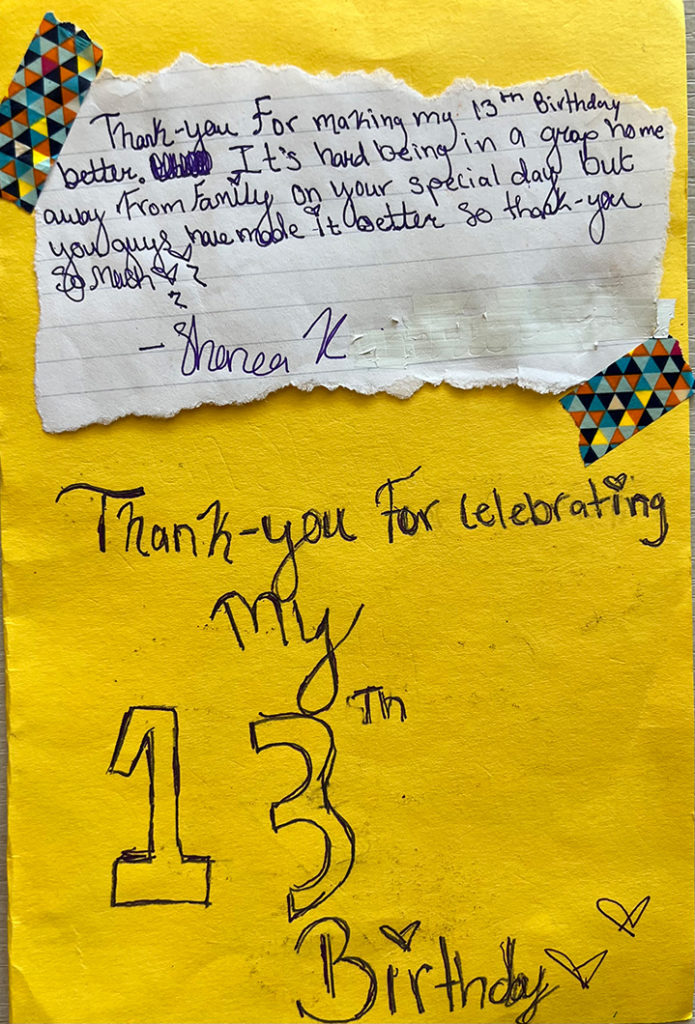 Thank-you For making my 13th Birthday
better. It's hard being in a group home
away From Family on your special day but
you guys have made it better so thank-you
so Much
- Shenea K
Thank-you For celebrating
My
13Th
Birthday